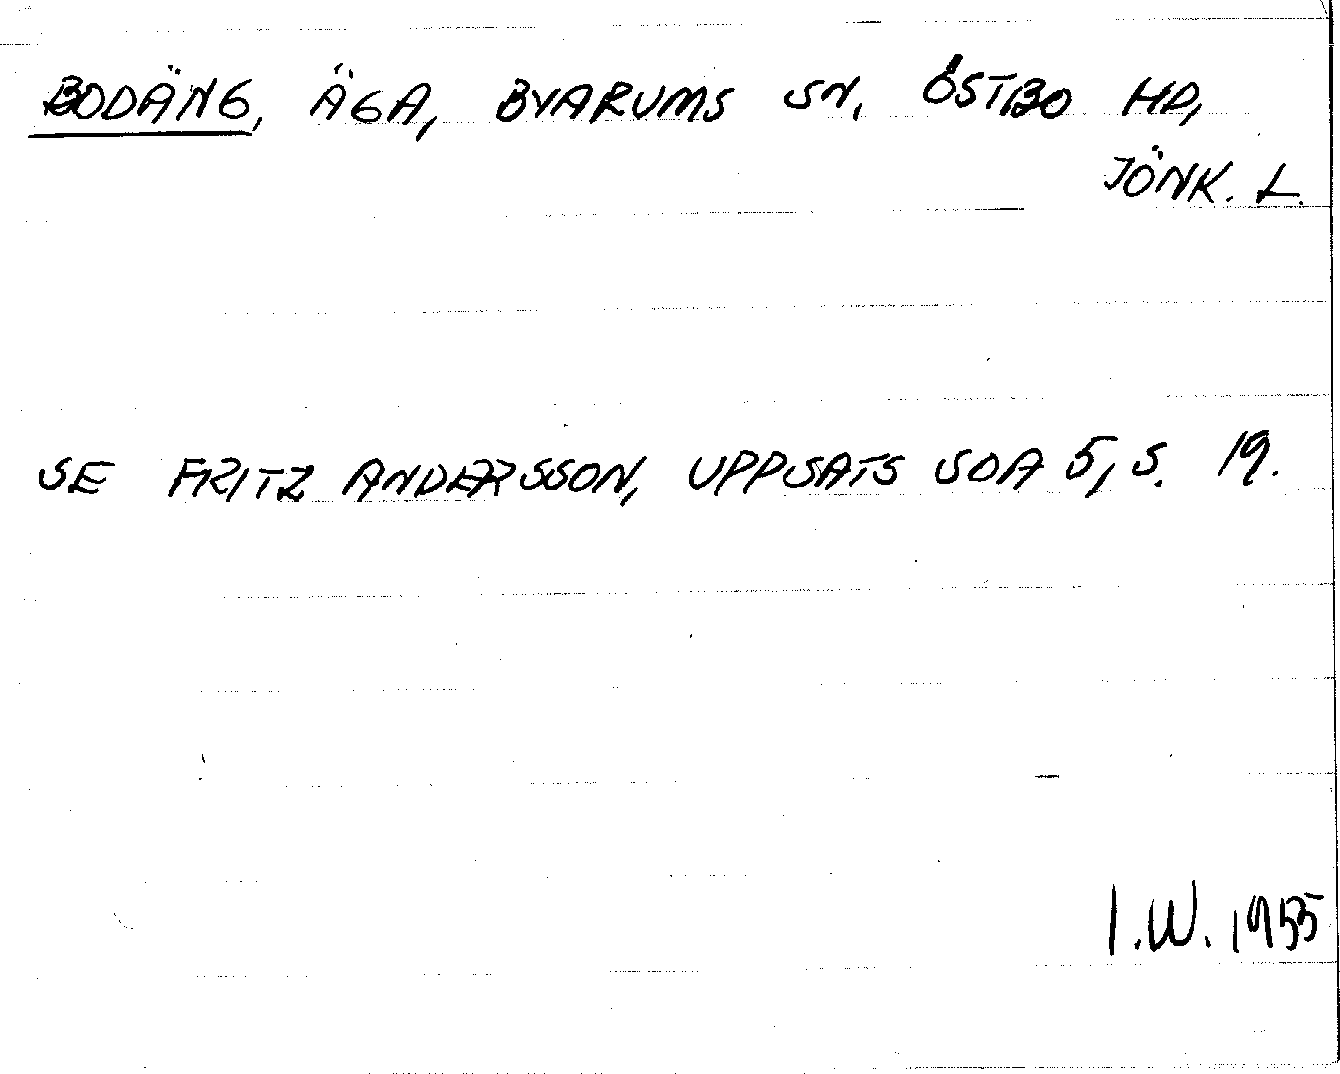 BODÄNG, ÄGA, BYARUMS SN, ÖSTBO HD,
JÖNK. L.
SE FRITZ ANDERSSON, UPPSATS SOA 5, S. 19.
I.W. 1955